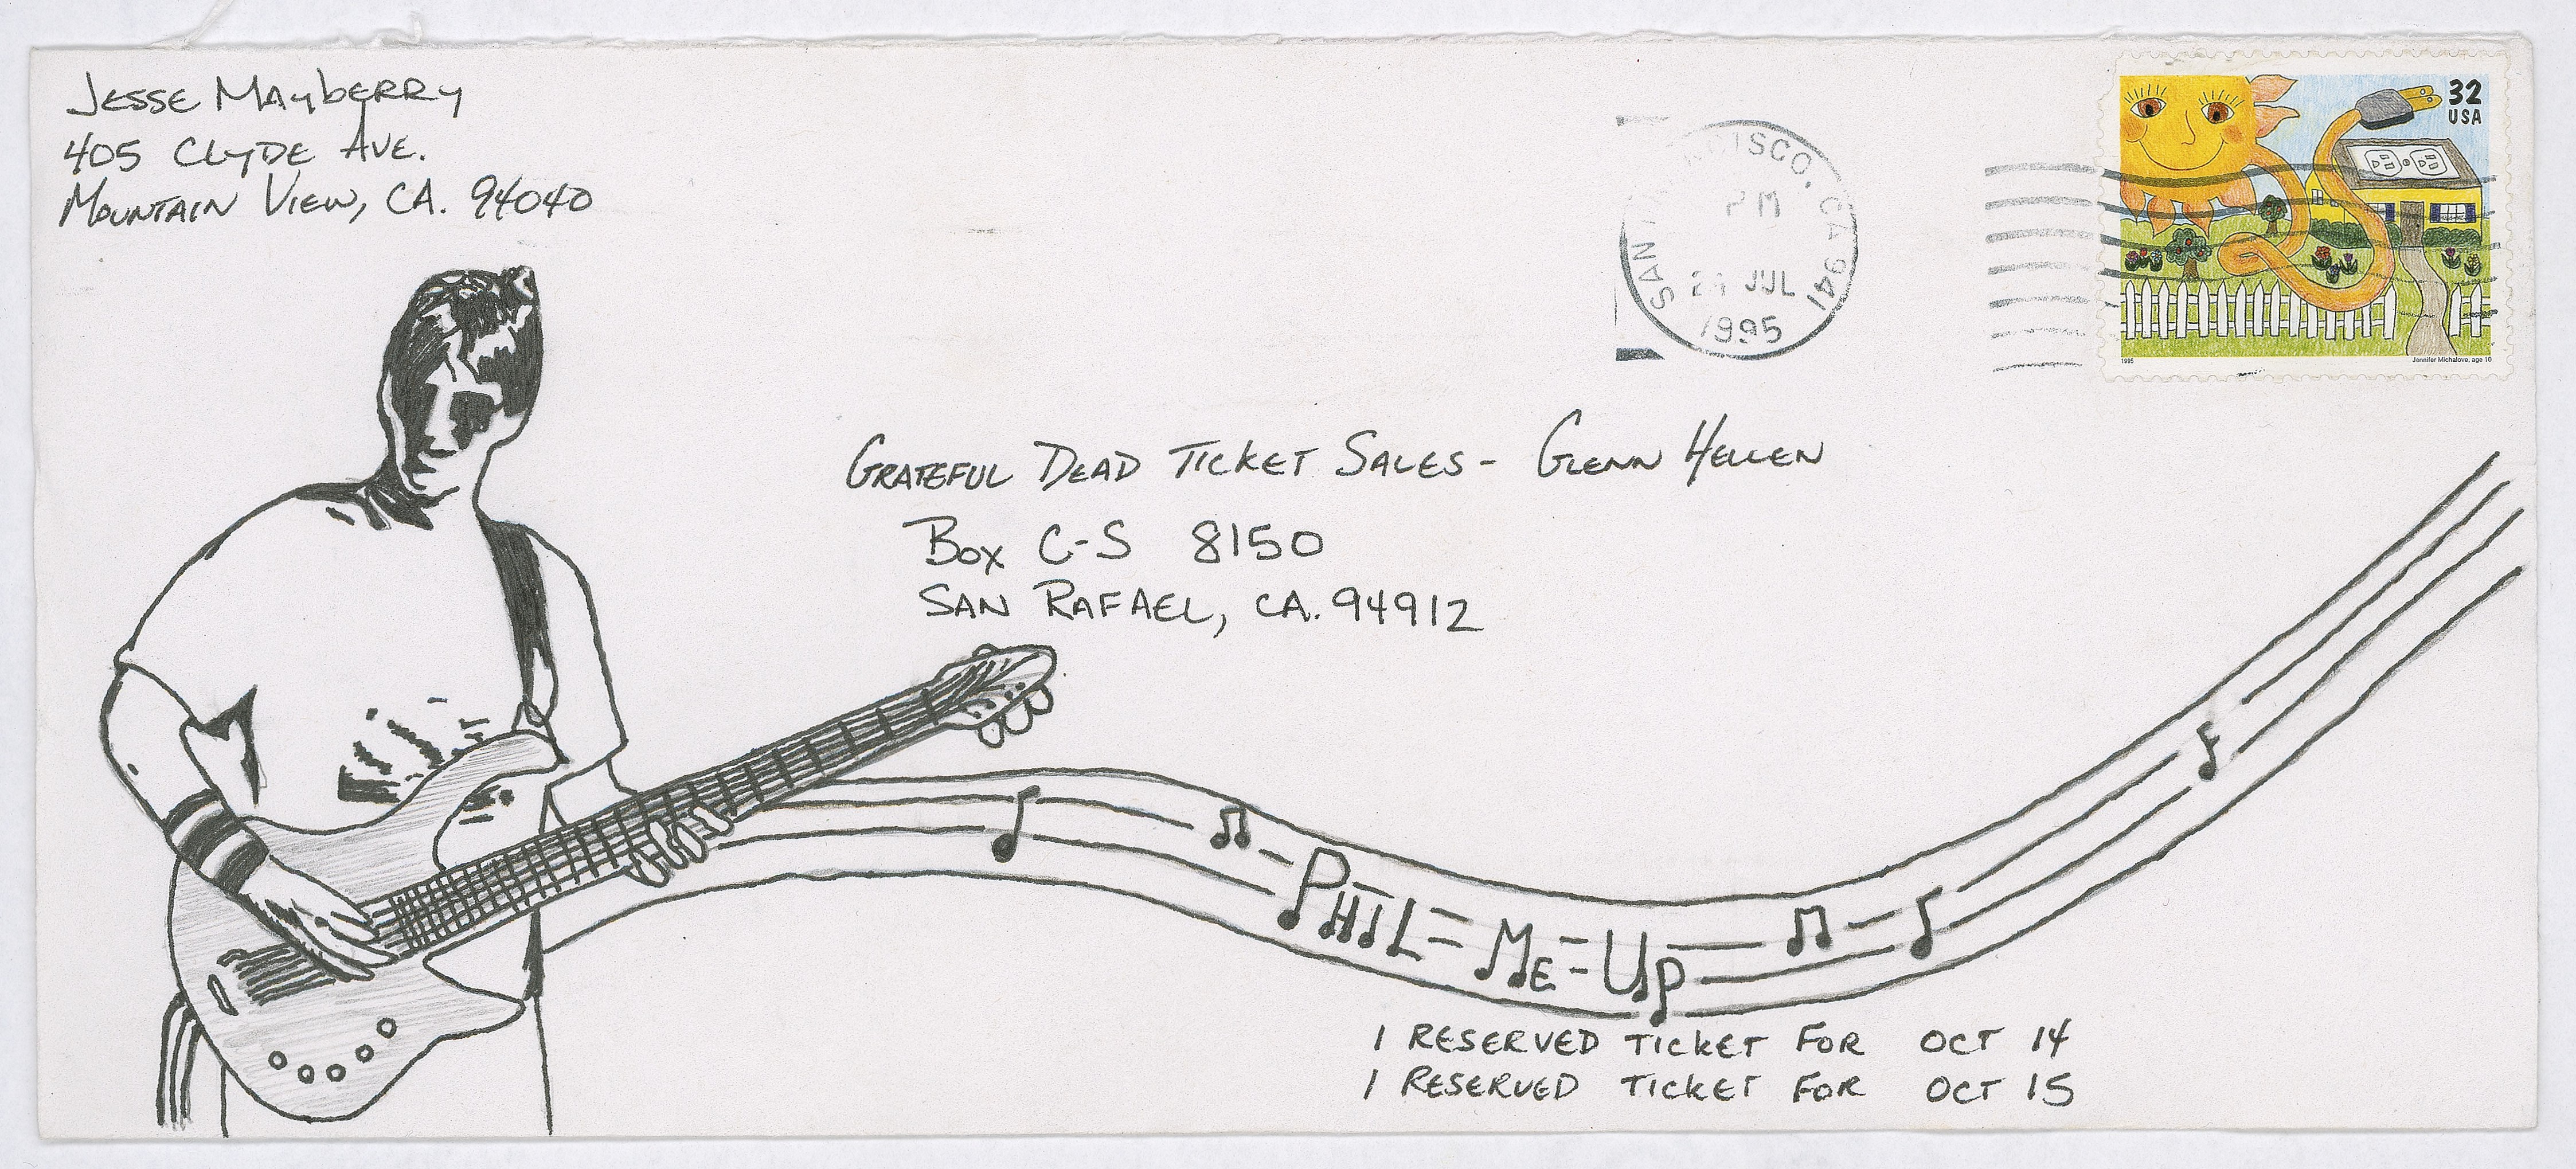 Jesse Mayberry
405 Clyde Ave.
Mountain View, CA. 94040
32
USA
1995
Jennifer Michalove, age 10
SAN CISCO, CA 941
PM
JUL
1995
Grateful Dead Ticket Sales - Glenn Hellen
Box C-S 8150
San Rafael, CA. 94912
Phil Me Up
1 Reserved Ticket for Oct 14
1 Reserved Ticket for Oct 15